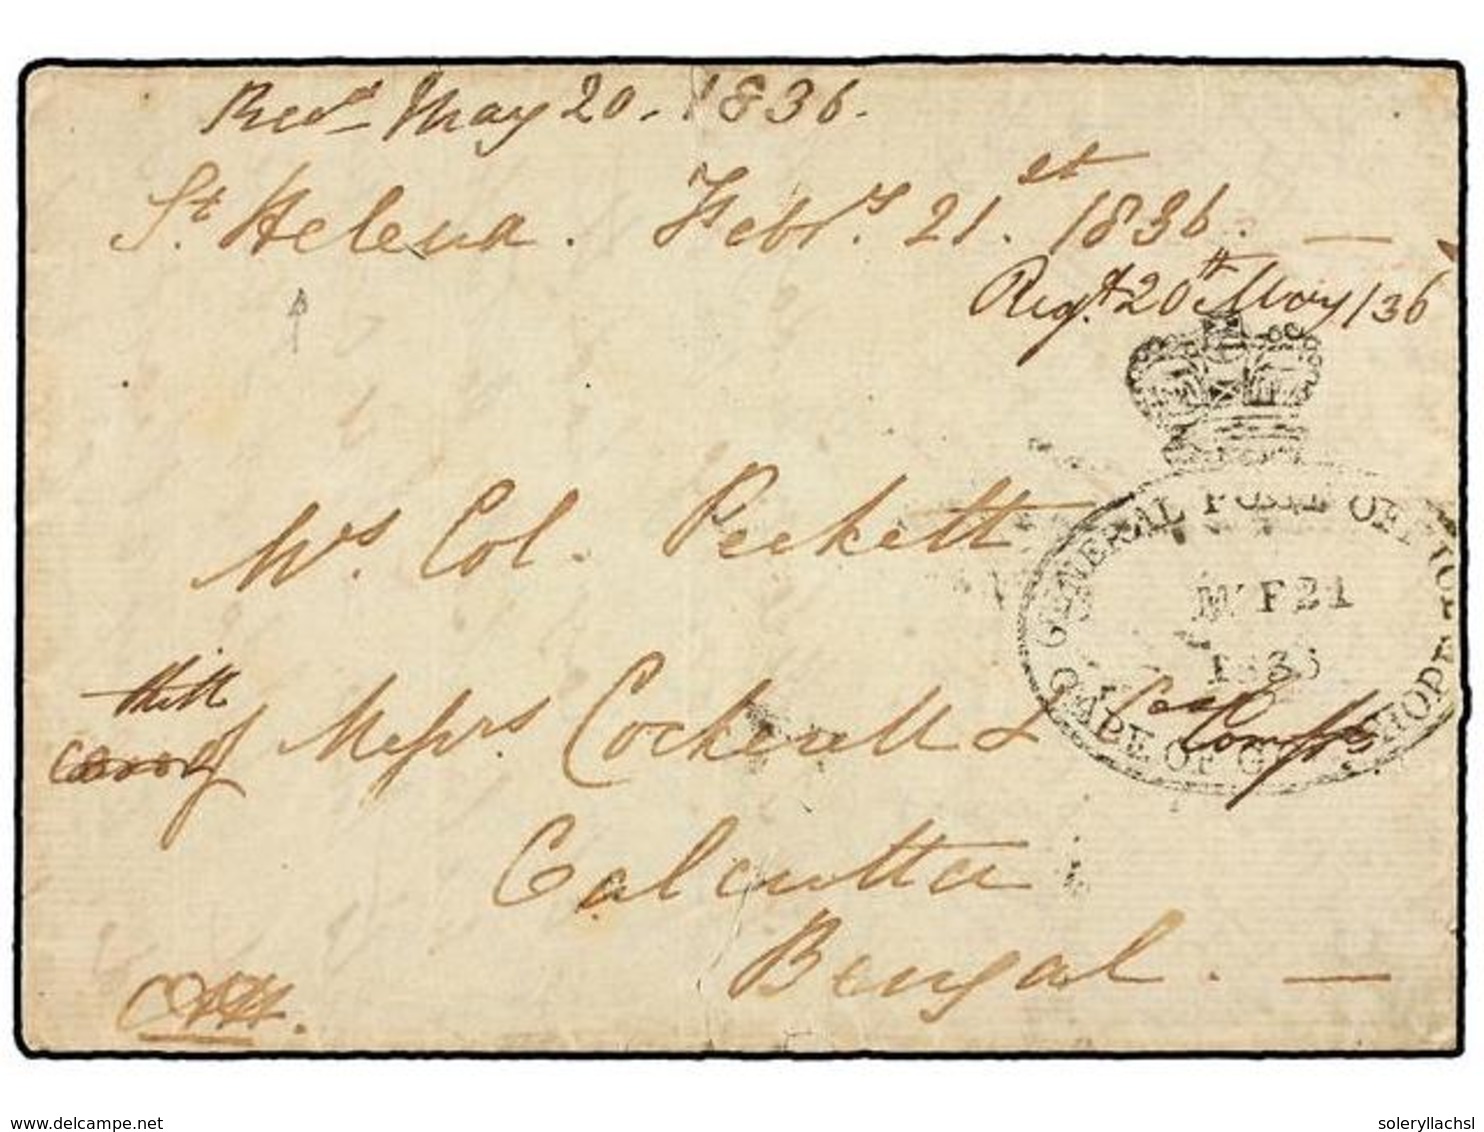 Recd May 20. 1836.
St. Helena. Febry. 21st 1836. —
Regd. 20th May / 36
Mrs. Col. Peckett
GENERAL POST OFFICE
MR F 21
1836
CAPE OF G HOPE
care of Messrs Cockerell & Compy
Calcutta
Bengal. —
www.delcampe.net
soleryllachsl